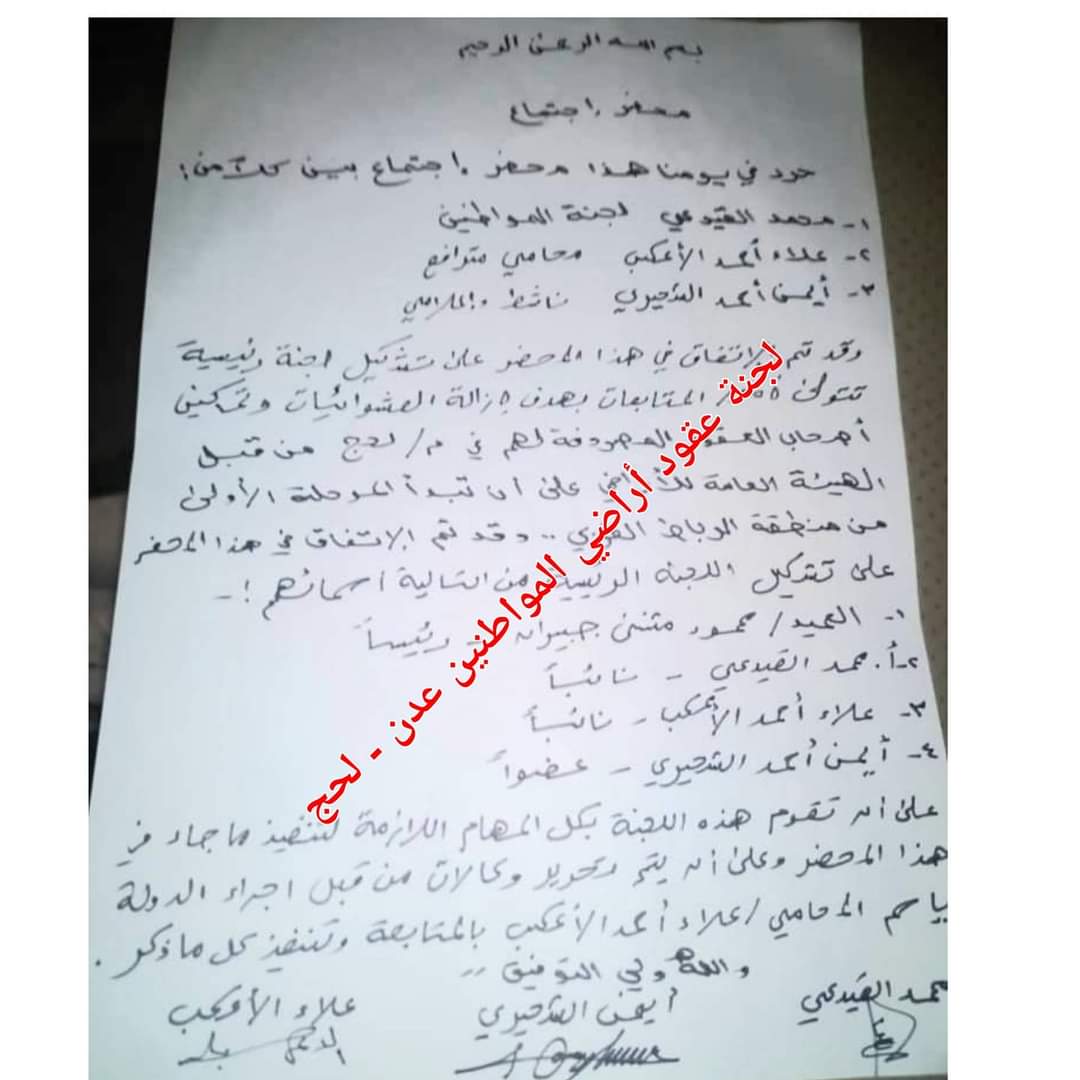 بسم الله الرحمن الرحيم
محضر اجتماع
حرر في يومنا هذا محضر اجتماع بين كلاً من:
١- محمد القيدعي لجنة المواطنين
٢- علاء أحمد الأعكب محامي مترافع
٣- أيمن أحمد الشحيري ناشط وإعلامي
وقد تم الاتفاق في هذا المحضر على تشكيل لجنة رئيسية
تتولى المتابعات بهدف إزالة العشوائيات وتمكين
أصحاب العقود المصروفة لهم في م/ لحج من قبل
الهيئة العامة للأراضي على ان تبدأ المرحلة الأولى
من منطقة الرباط الغربي .. وقد تم الاتفاق في هذا المحضر
على تشكيل اللجنة الرئيسية من التالية اسمائهم :-
١- العميد/ محمود مثنى جبيران - رئيساً
٢- أ. محمد القيدعي - نائباً
٣- علاء أحمد الأعكب - نائباً
٤- أيمن أحمد الشحيري - عضواً
على ان تقوم هذه اللجنة بكل المهام اللازمة لتنفيذ ما جاء في
هذا المحضر وعلى ان يتم تحرير وكالات من قبل اجراء الدولة
باسم المحامي/ علاء أحمد الأعكب بالمتابعة وتنفيذ كل ما ذكر .
والله ولي التوفيق ..
محمد القيدعي
أيمن الشحيري
علاء الأعكب
لجنة عقود أراضي المواطنين عدن - لحج